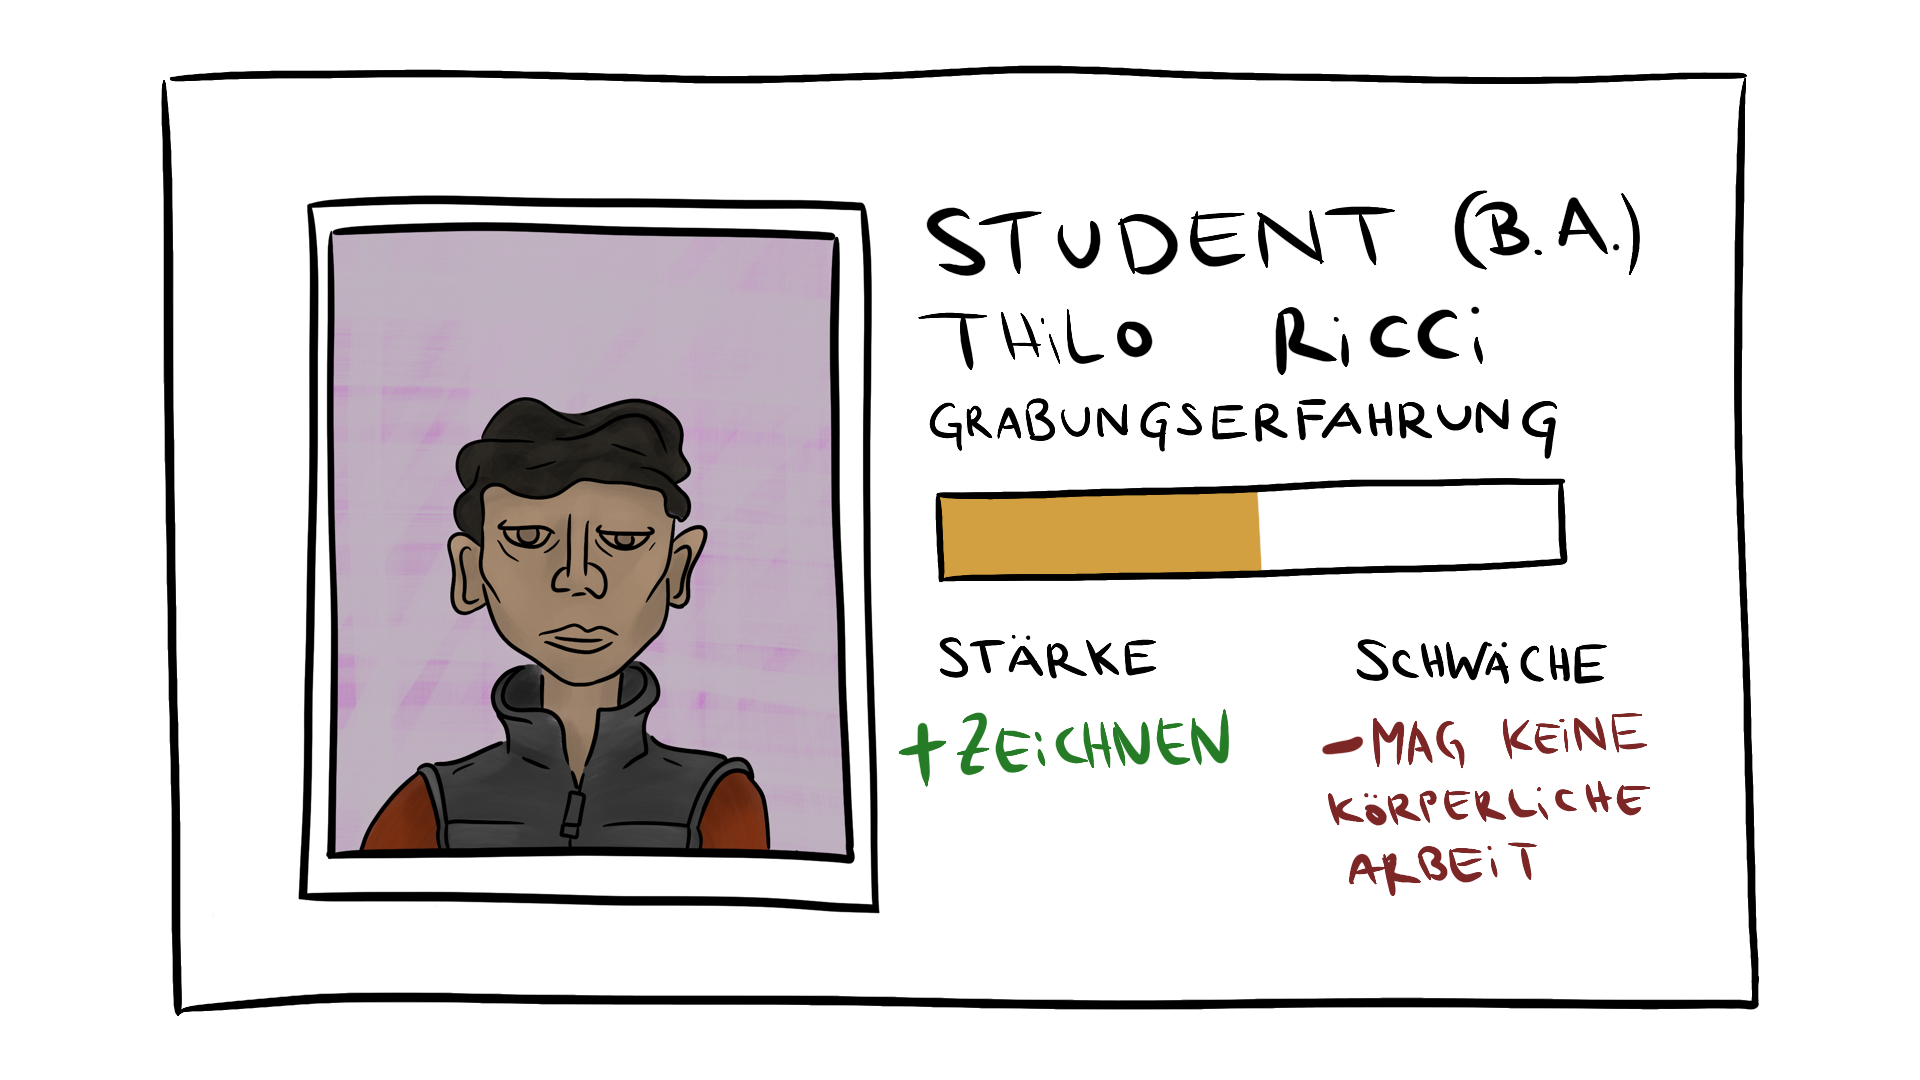 STUDENT (B.A.)
THiLO RiCCi
GRABUNGSERFAHRUNG
STÄRKE
+ZEiCHNEN
SCHWÄCHE
-MAG KEiNE
KÖRPERLiCHE
ARBEiT